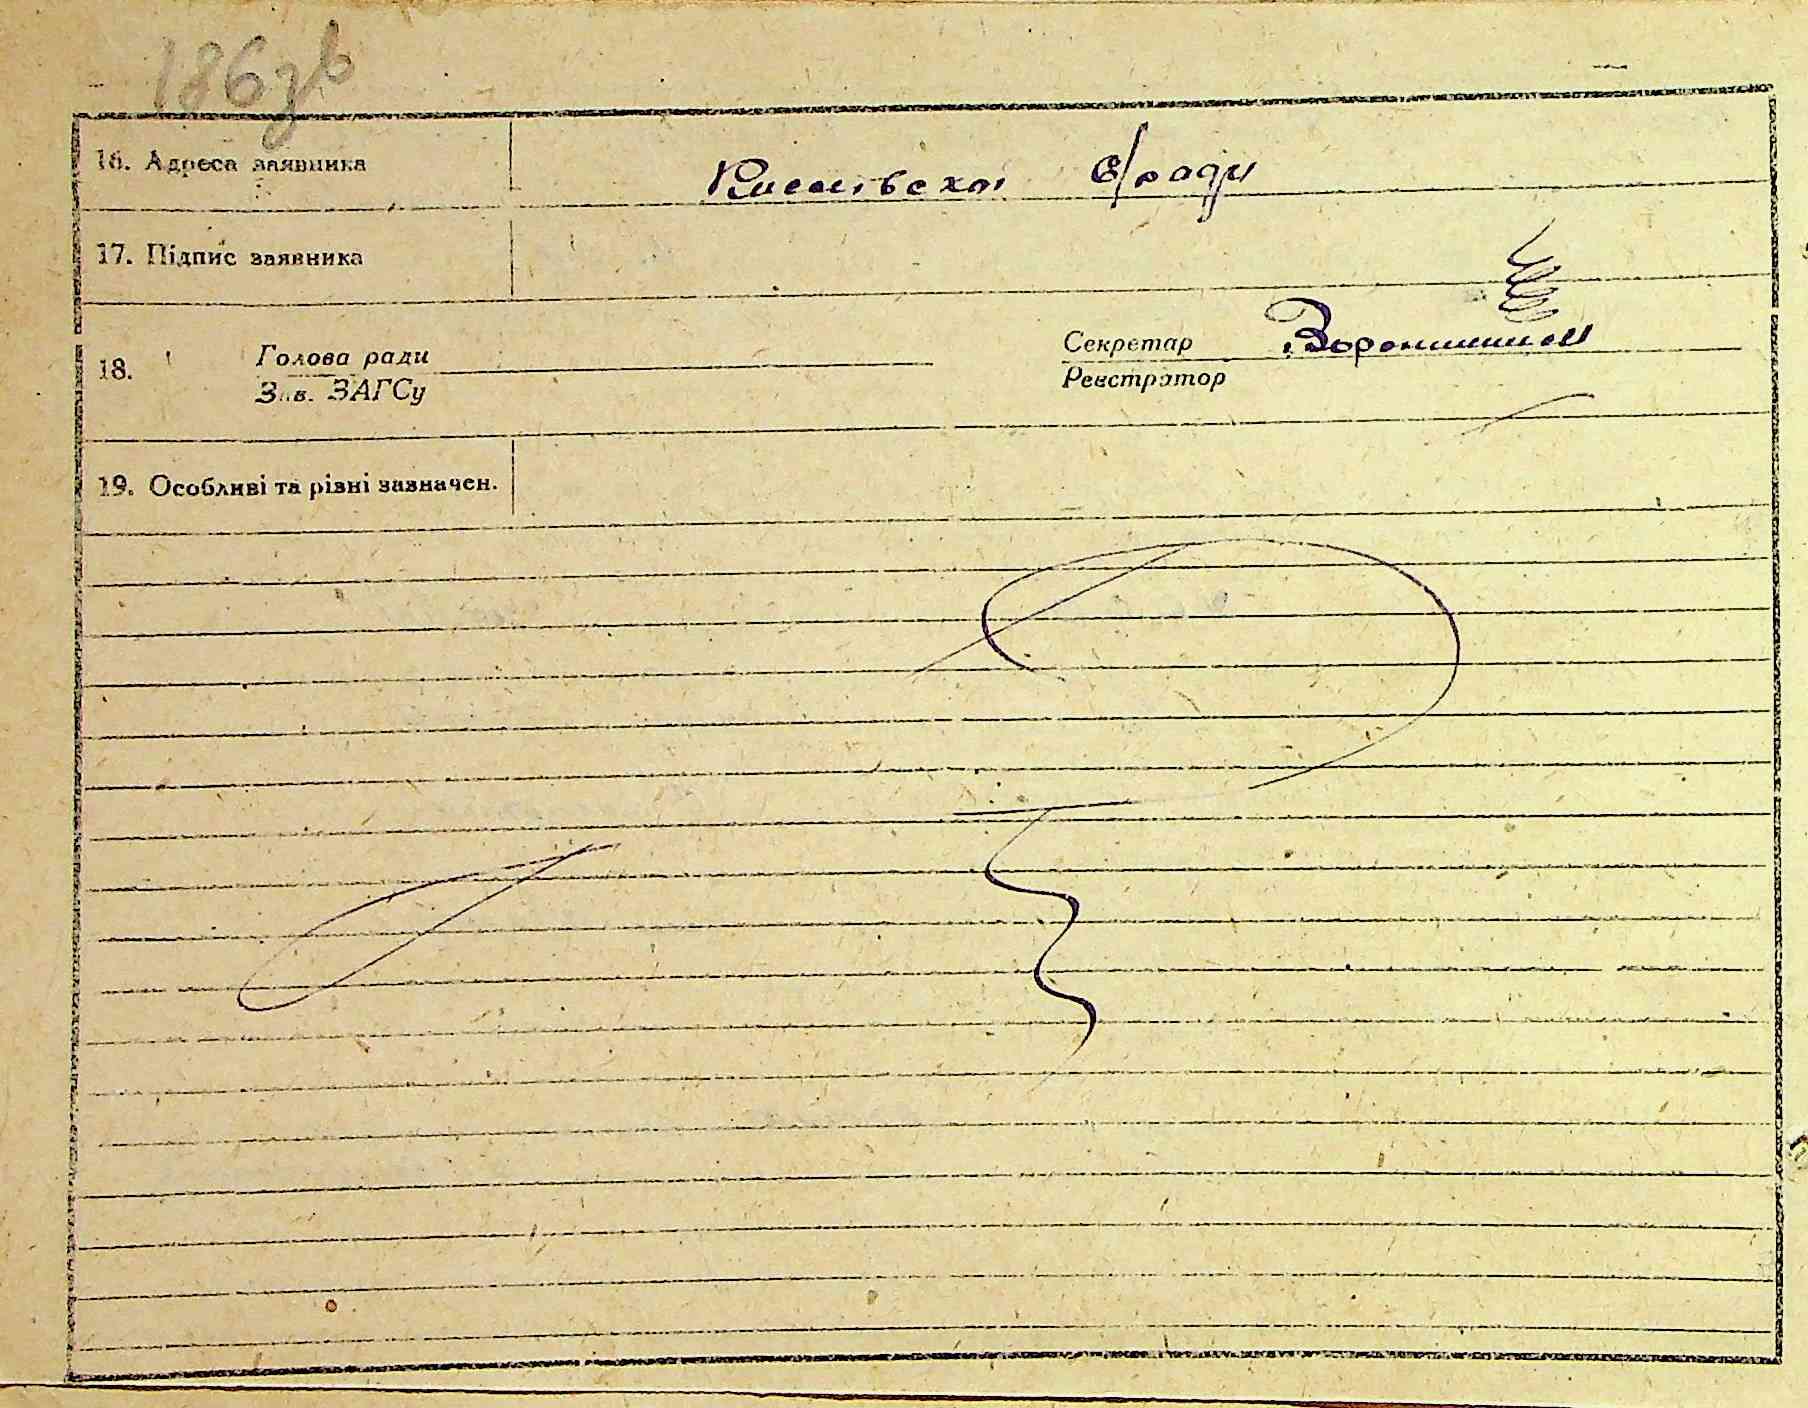 186зв
16. Адреса заявника с/ради
17. Підпис заявника
18. Голова ради Секретар
Зав. ЗАГСу Реєстратор
19. Особливі та різні зазначен.